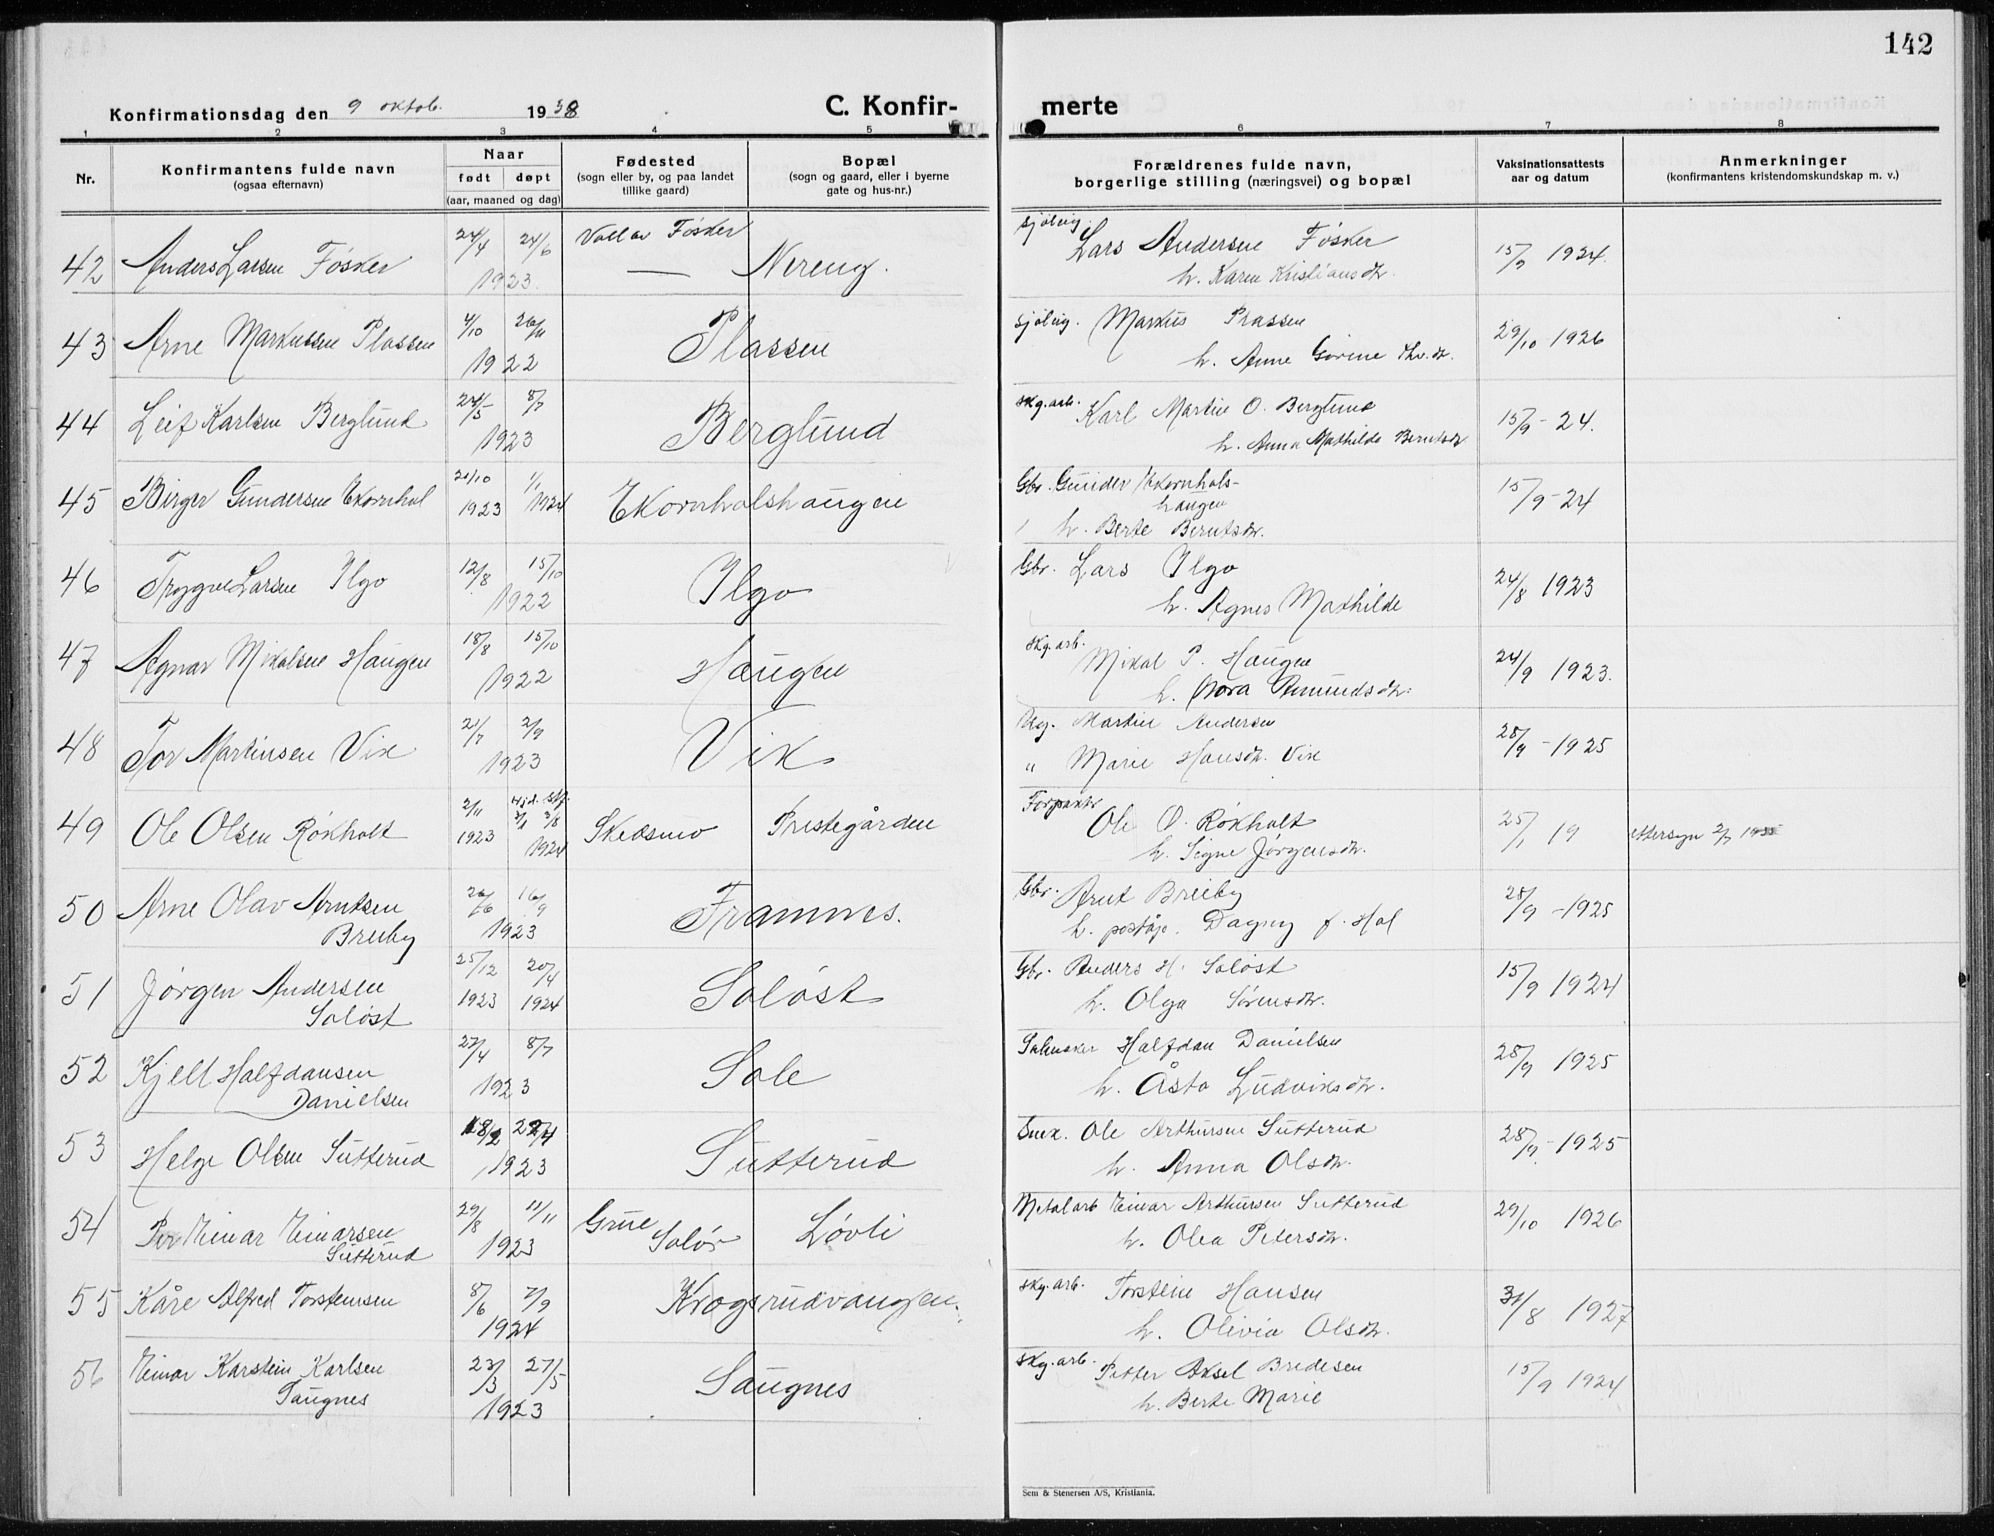 142
Konfirmationsdag den 9 oktob. 1938
C. Konfir-
merte
1 2 3 4 5 6 7 8
Nr.
Konfirmantens fulde navn
(ogsaa efternavn)
Naar
født døpt
(aar, maaned og dag)
Fødested
(sogn eller by, og paa landet
tillike gaard)
Bopæl
(sogn og gaard, eller i byerne
gate og hus-nr.)
Forældrenes fulde navn,
borgerlige stilling (næringsvei) og bopæl
Vaksinationsattests
aar og datum
Anmerkninger
(konfirmantens kristendomskundskap m. v.)
42 Anders Larsen Føsker 24/4 24/6 1923 Føsker — Nereng.
Sjøleig. Lars Andersen Føsker
h. Karen Kristiansdtr. 15/9 1924.
43 Arne Markussen Plassen 4/10 26/11 1922 Plassen
Sjøleig. Markus Plassen
h. Anne Gørine 29/10 1926
44 Leif Karlsen Berglund 24/5 8/7 1923 Berglund
skg.arb. Karl Martin O. Berglund
h. Anna Mathilde Berntsdtr 15/9-24.
45 Birger Gundersen Ekornhol 20/10 1923 1/1 1924 Ekornholshaugen
Gbr. Gunder Ekornhols-
haugen
h. Berte Berntsdtr. 15/9-24
46 Trygve Larsen Ilgo 12/8 15/10 1922 Ilgo
Gbr. Lars Ilgo
h. Agnes Mathilde 24/8 1923
47 Agnar Mikalsen Haugen 18/8 15/10 1922 Haugen
skg.arb. Mikal P. Haugen
h. Nora Amundsdtr. 24/9 1923.
48 Tor Martinsen Vik 21/7 2/9 1923 Vik
Ug. Martin Andersen
" Marie Hansdtr. Vik 28/9-1925
49 Ole Olsen Røkholt 2/11 1923 3/8 1924 Skedsmo Prestegården
Forpaktr Ole O. Røkholt
h. Signe Jørgensdtr. 25/1 19 ettersyn
50 Arne Olav Arntsen
Breiby 26/6 16/9 1923 Framnes.
Gbr. Arnt Breiby
h. poståp. Dagny f. Hol 28/9-1925
51 Jørgen Andersen
Soløst 25/12 1923 20/4 1924 Soløst
Gbr. Anders H. Soløst
h. Olga Sørensdtr. 15/9 1924
52 Kjell Halfdansen
Danielsen 27/4 8/7 1923 Sole
Halfdan Danielsen
h. Åsta Ludviksdtr. 28/9 1925
53 Helge Olsen Sutterud 18/2 22/4 1923 Sutterud
Snek. Ole Arthursen Sutterud
h. Anna Olsdtr. 28/9-1925
54 Per Einar Einarsen
Sutterud 29/8 11/11 1923 Grue
Solør Løvli
Metalarb Einar Arthursen Sutterud
h. Olea Petersdtr. 29/10 1926
55 Kåre Alfred Torsteinsen 8/6 7/9 1924 Krogsrudvangen.
skg.arb. Torstein Hansen
h. Olivia Olsdtr. 31/8 1927
56 Einar Karstein Karlsen
Saugnes 23/3 27/5 1923 Saugnes
skg.arb. Petter Aksel Bredesen
h. Berte Marie 15/9 1924
Sem & Stenersen A/S, Kristiania.